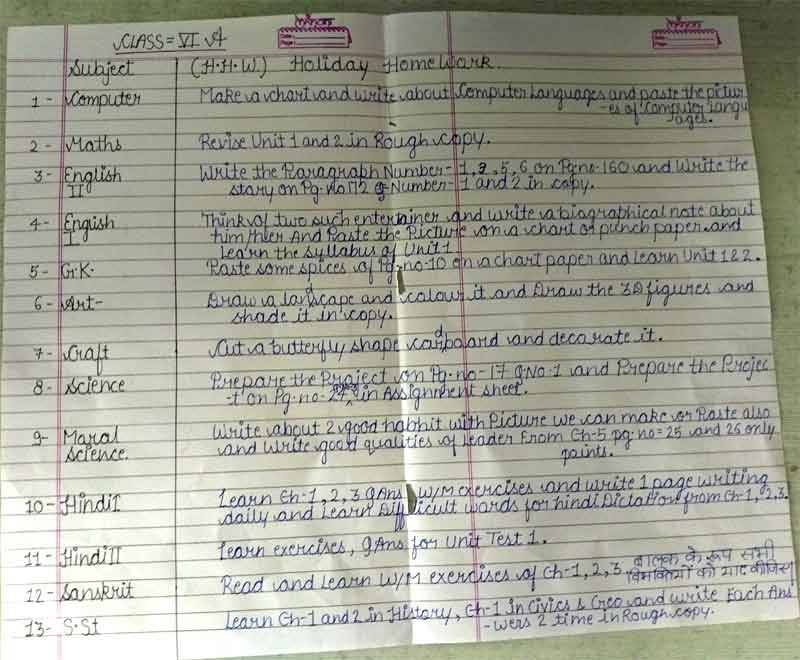 CLASS = VI A
Date:
Page:
Date:
Page:
Subject (H.H.W.) Holiday Home Work.
1 - Computer Make a chart and write about Computer Languages and paste the pictur-
-es of Computer langu
ages.
2 - Maths Revise Unit 1 and 2 in Rough copy.
3 - English II Write the Paragraph Number- 1, 2, 5, 6 on Pg.no-160 and Write the
story on Pg-no 172 Q Number- 1 and 2 in copy.
4 - Engish I Think of two such entertainer and write a biographical note about
him/her And Paste the Picture on a chart or punch paper and
learn the syllabus of Unit 1
5 - G.K. Paste some spices of Pg-no-10 on a chart paper and learn Unit 1&2.
6 - Art- Draw a landscape and colour it and Draw the 3D figures and
shade it in copy.
7 - Craft Cut a butterfly shape cardboard and decorate it.
8 - Science Prepare the Project on Pg-no-17 Q No-1 and Prepare the Projec
-t on Pg-no- in Assignment sheet.
9- Moral Science. Write about 2 good habhit with Picture we can make or Paste also
and write good qualities of leader From Ch-5 pg no=25 and 26 only
points.
10 - Hindi I Learn Ch-1, 2, 3 QAns W/M exercises and write 1 page writing
daily and Learn Difficult words for hindi Dictation from Ch-1,2,3.
11 - Hindi II learn exercises, QAns for Unit Test 1.
12 - Sanskrit Read and Learn W/M exercises of Ch-1, 2, 3. बालक के रूप सभी
विभक्तियों को याद कीजिए
13 - S.St Learn Ch-1 and 2 in History, Ch-1 in Civics & Geo and write Each Ans
-wers 2 time in Rough copy.